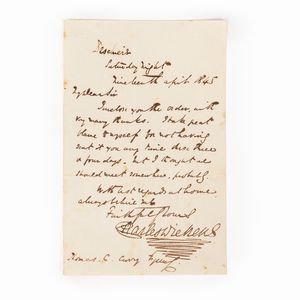 Saturday Night
Nineteenth April 1845
My Dear Sir
I enclose you the order, with
very many thanks. I take great
blame to myself for not having
sent it you any time these three
or four days. But I thought we
should meet somewhere, probably.
With best regards at home
always believe me
Faithfully Yours
Charles Dickens
Thomas C.